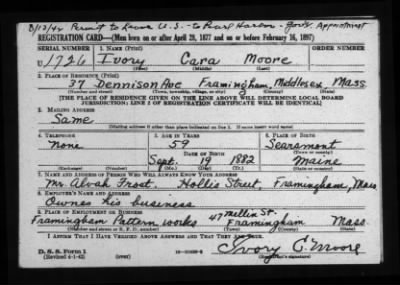 8/13/42 Permit to Leave U.S. - to Pearl Harbor - Govt. Appointment
REGISTRATION CARD—(Men born on or after April 28, 1877 and on or before February 16, 1897)
SERIAL NUMBER 1. NAME (Print)
U 1726 Ivory Cara Moore
(First) (Middle) (Last)
2. PLACE OF RESIDENCE (Print)
37 Dennison Ave Framingham, Middlesex Mass
(Number and street) (Town, township, village, or city) (County) (State)
[THE PLACE OF RESIDENCE GIVEN ON THE LINE ABOVE WILL DETERMINE LOCAL BOARD
JURISDICTION; LINE 2 OF REGISTRATION CERTIFICATE WILL BE IDENTICAL]
3. MAILING ADDRESS
Same
(Mailing address if other than place indicated on line 2. If same insert word same)
4. TELEPHONE 5. AGE IN YEARS 6. PLACE OF BIRTH
None 59 Searsmont
DATE OF BIRTH (Town or county)
Sept. 19 1882 Maine
(Exchange) (Number) (Mo.) (Day) (Yr.) (State or country)
7. NAME AND ADDRESS OF PERSON WHO WILL ALWAYS KNOW YOUR ADDRESS
Mr. Alvah Frost Hollis Street, Framingham, Mass
8. EMPLOYER'S NAME AND ADDRESS
Owns his business
9. PLACE OF EMPLOYMENT OR BUSINESS
Framingham Pattern works 47 Mellin St. Framingham Mass.
(Number and street or R. F. D. number) (Town) (County) (State)
I AFFIRM THAT I HAVE VERIFIED ABOVE ANSWERS AND THAT THEY ARE TRUE.
D. S. S. Form 1
(Revised 4-1-42) (over)
Ivory C. Moore
(Registrant's signature)